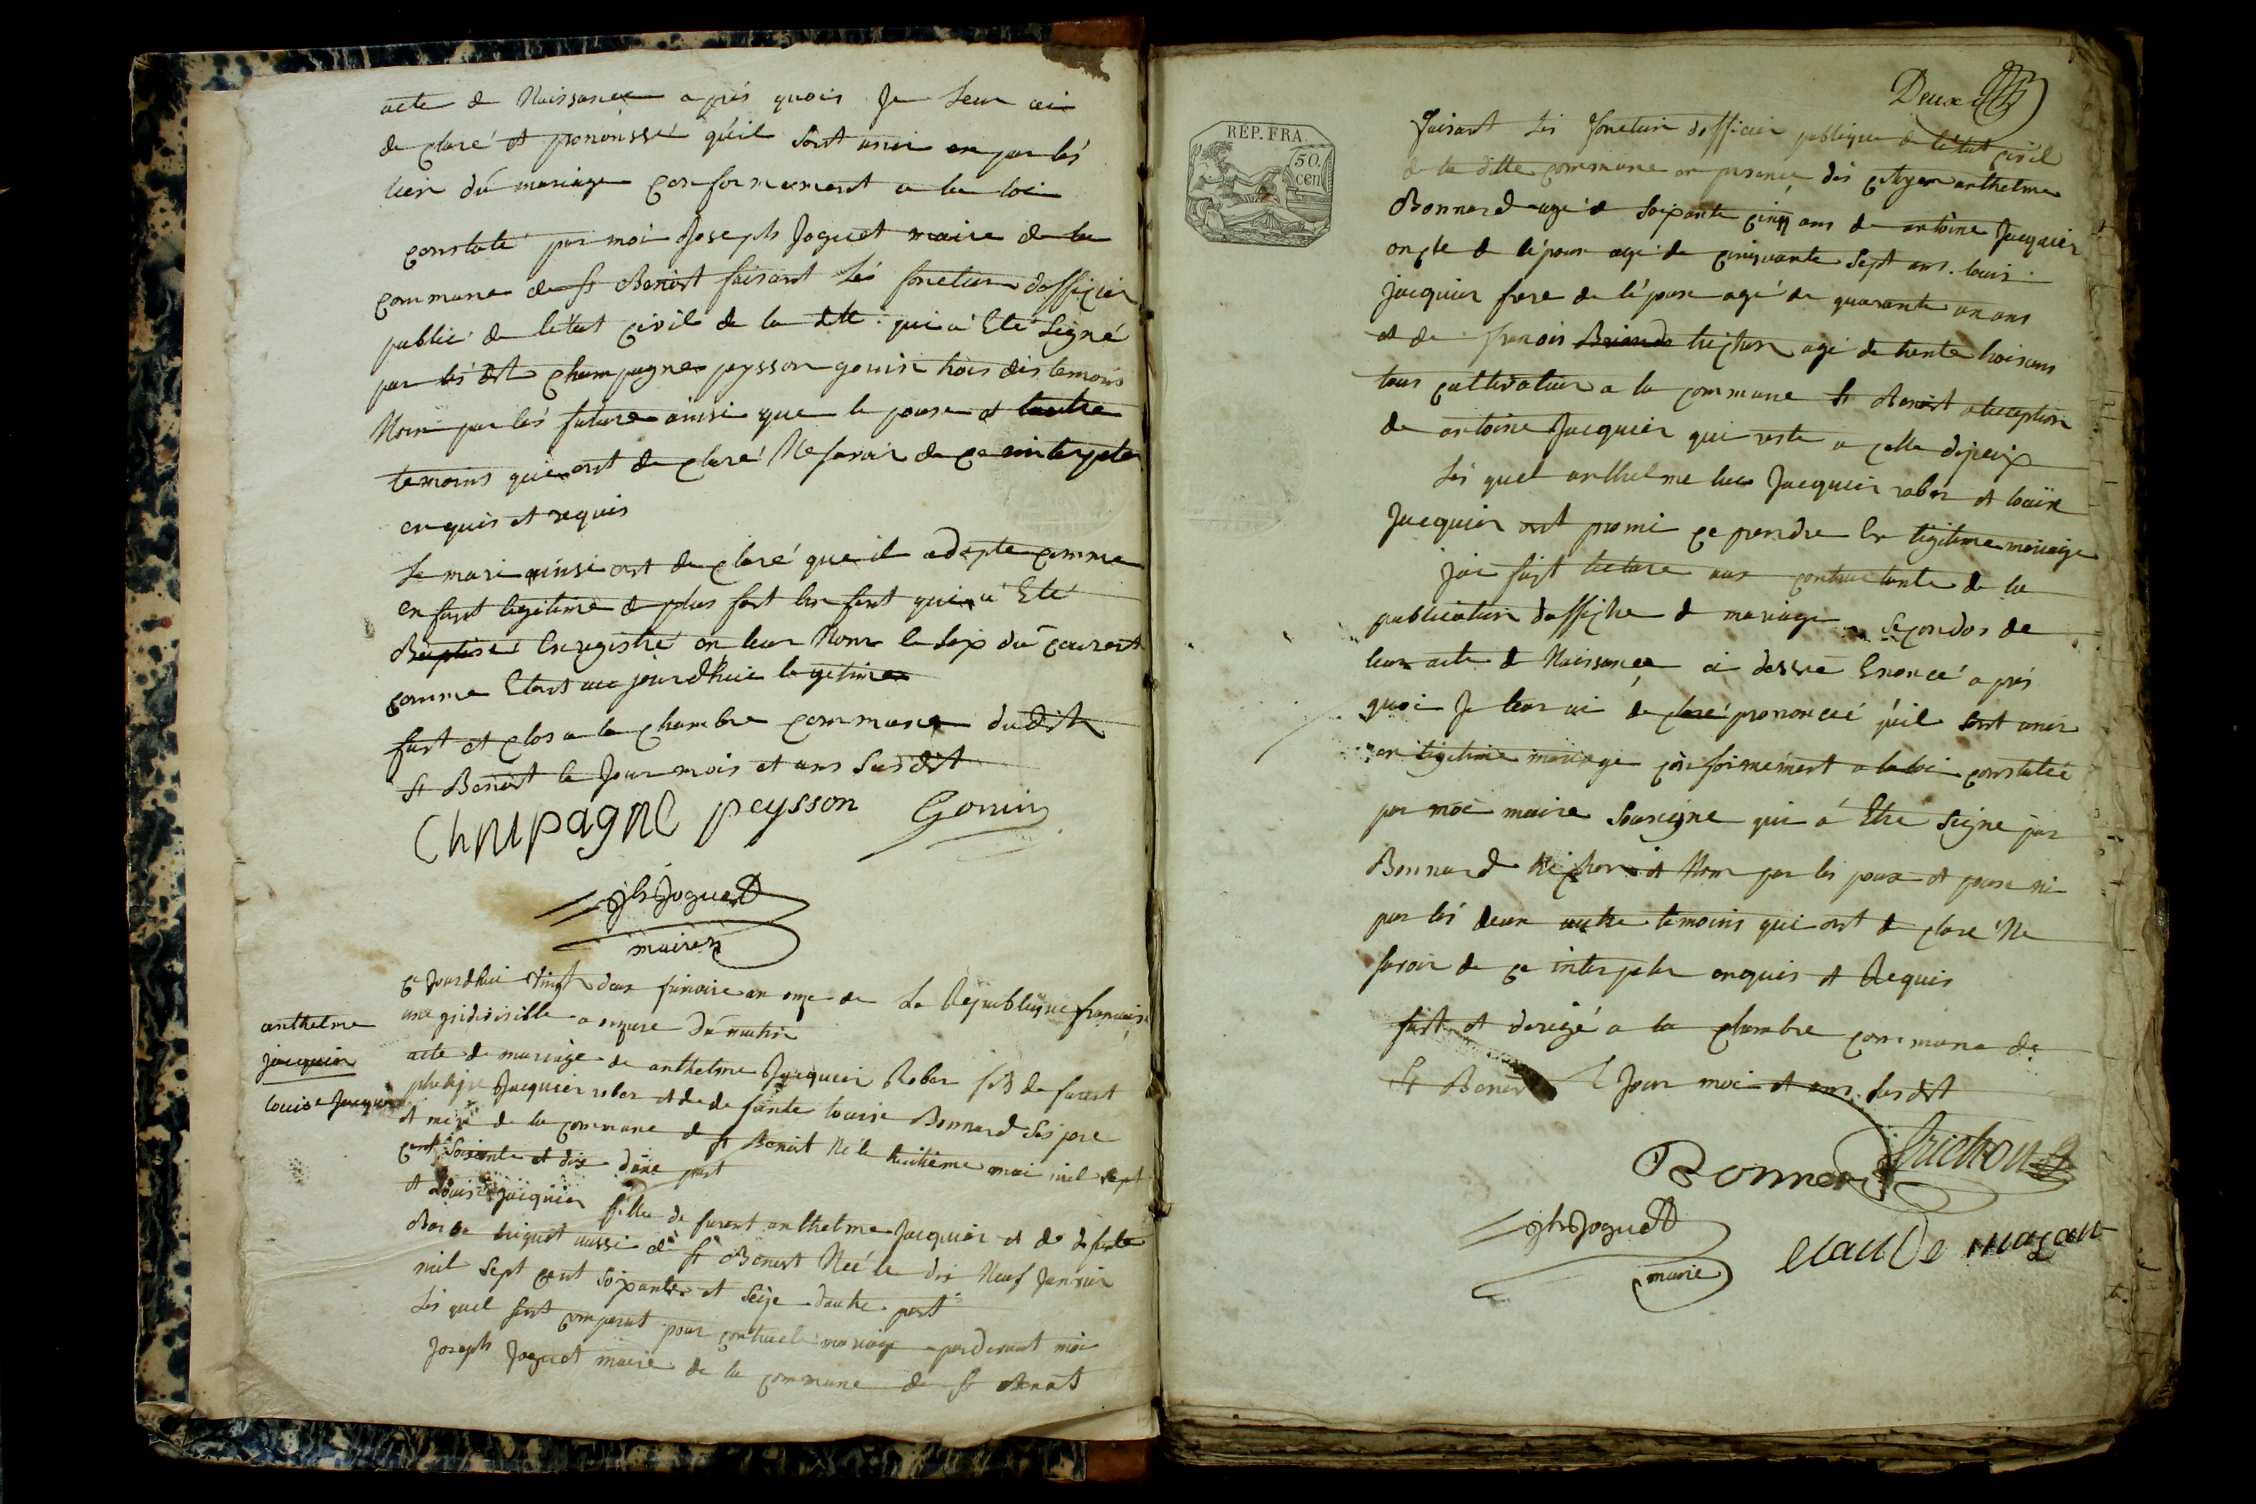 acte de Naissance aprés quois Je leur ai
de claré et prononssé qúil sont unir en par lés
lien dú mariage conformement a la loi
constaté par moi Joseph Joguet maire de la
commune de st Benoit faisant lés fonction dofficier
public de létat civil de la ditte qui à Eté Signé
par lés dit champagne peysson gonin trois dés temoins
Nom par lés future ainsi que le pouse et lautre
temoins qui ont de claré Ne savoir de ce interpeler
en quis et requis
Le mari ainsi ont de claré que il adopte comme
en fant legitime de plus fort len fant qui a Eté
Baptisé En registré en leur Nom le six dú courant
comme Etant au jourdhuie legitime
fait et clos a la chambre commune dudit
st Benoit le Jour mois et ans Susdit
Chmpagne peysson Gonin
jh Joguet
maire
anthelme
jacquier
louise Jacquier
ce Jourdhui vingt deux frimaire an onze de La Republique francaise
une indivisible a onzure Dú matin
acte de mariage de anthelme Jacquier Rober fils de furent
philipe Jacquier rober et de de funte louise Bonnard Sés pere
et mere de la commune de st Benoit Né le huitième mai mil sept
cent Soisante et dix dúne part
et Louise Jacquier fille de furent anthelme Jacquier et de defunte
Borde briguet aussi de st Benoit Neé le dix Neuf Janvier
mil Sept cent soixante et Seize dautre part
Lés quel sont comparut pour contracte mariage pardevant moi
Joseph Joguet maire de la commune de st Benoit
Deux
RÉP. FRA.
50.
cen
faisant Lés fonction dofficier publique de létat civil
de la ditte commune en presence dés citoyen anthelme
Bonnard agé de soixante cinq ans de antoine Jacquier
oncle de lépoux agé de cinquante Sept ans. louis
Jacquier frere de lépouse agé de quarante un ans
et de francois trichon agé de trente trois ans
tous cultivateur a la commune st Benoit a lexception
de antoine Jacquier qui reste a celle depeix
Lés quel anthelme Jacquier rober et louise
Jacquier ont promi ce prendre En legitime mariage
jai fait lecture aux contractante de la
publication daffiche de mariage Secondos de
leur acte de Naissance ci dessue Enoncé aprés
quoi Je leur ai de claré prononceé quil sont unir
en legitime mariage conformément a la loi constateé
par moi maire Sousigne qui á Etre Signe par
Bonnard trichon et Nom par les poux et pouse ni
par lés deux autre temoins qui ont de claré Ne
savoir de ce interpeler enquis et Requis
fait et derigé a la chambre commune de
St Benoit Jour moi et ans Susdit
Bonnard trichon
jh Joguet
maire
claude mugant